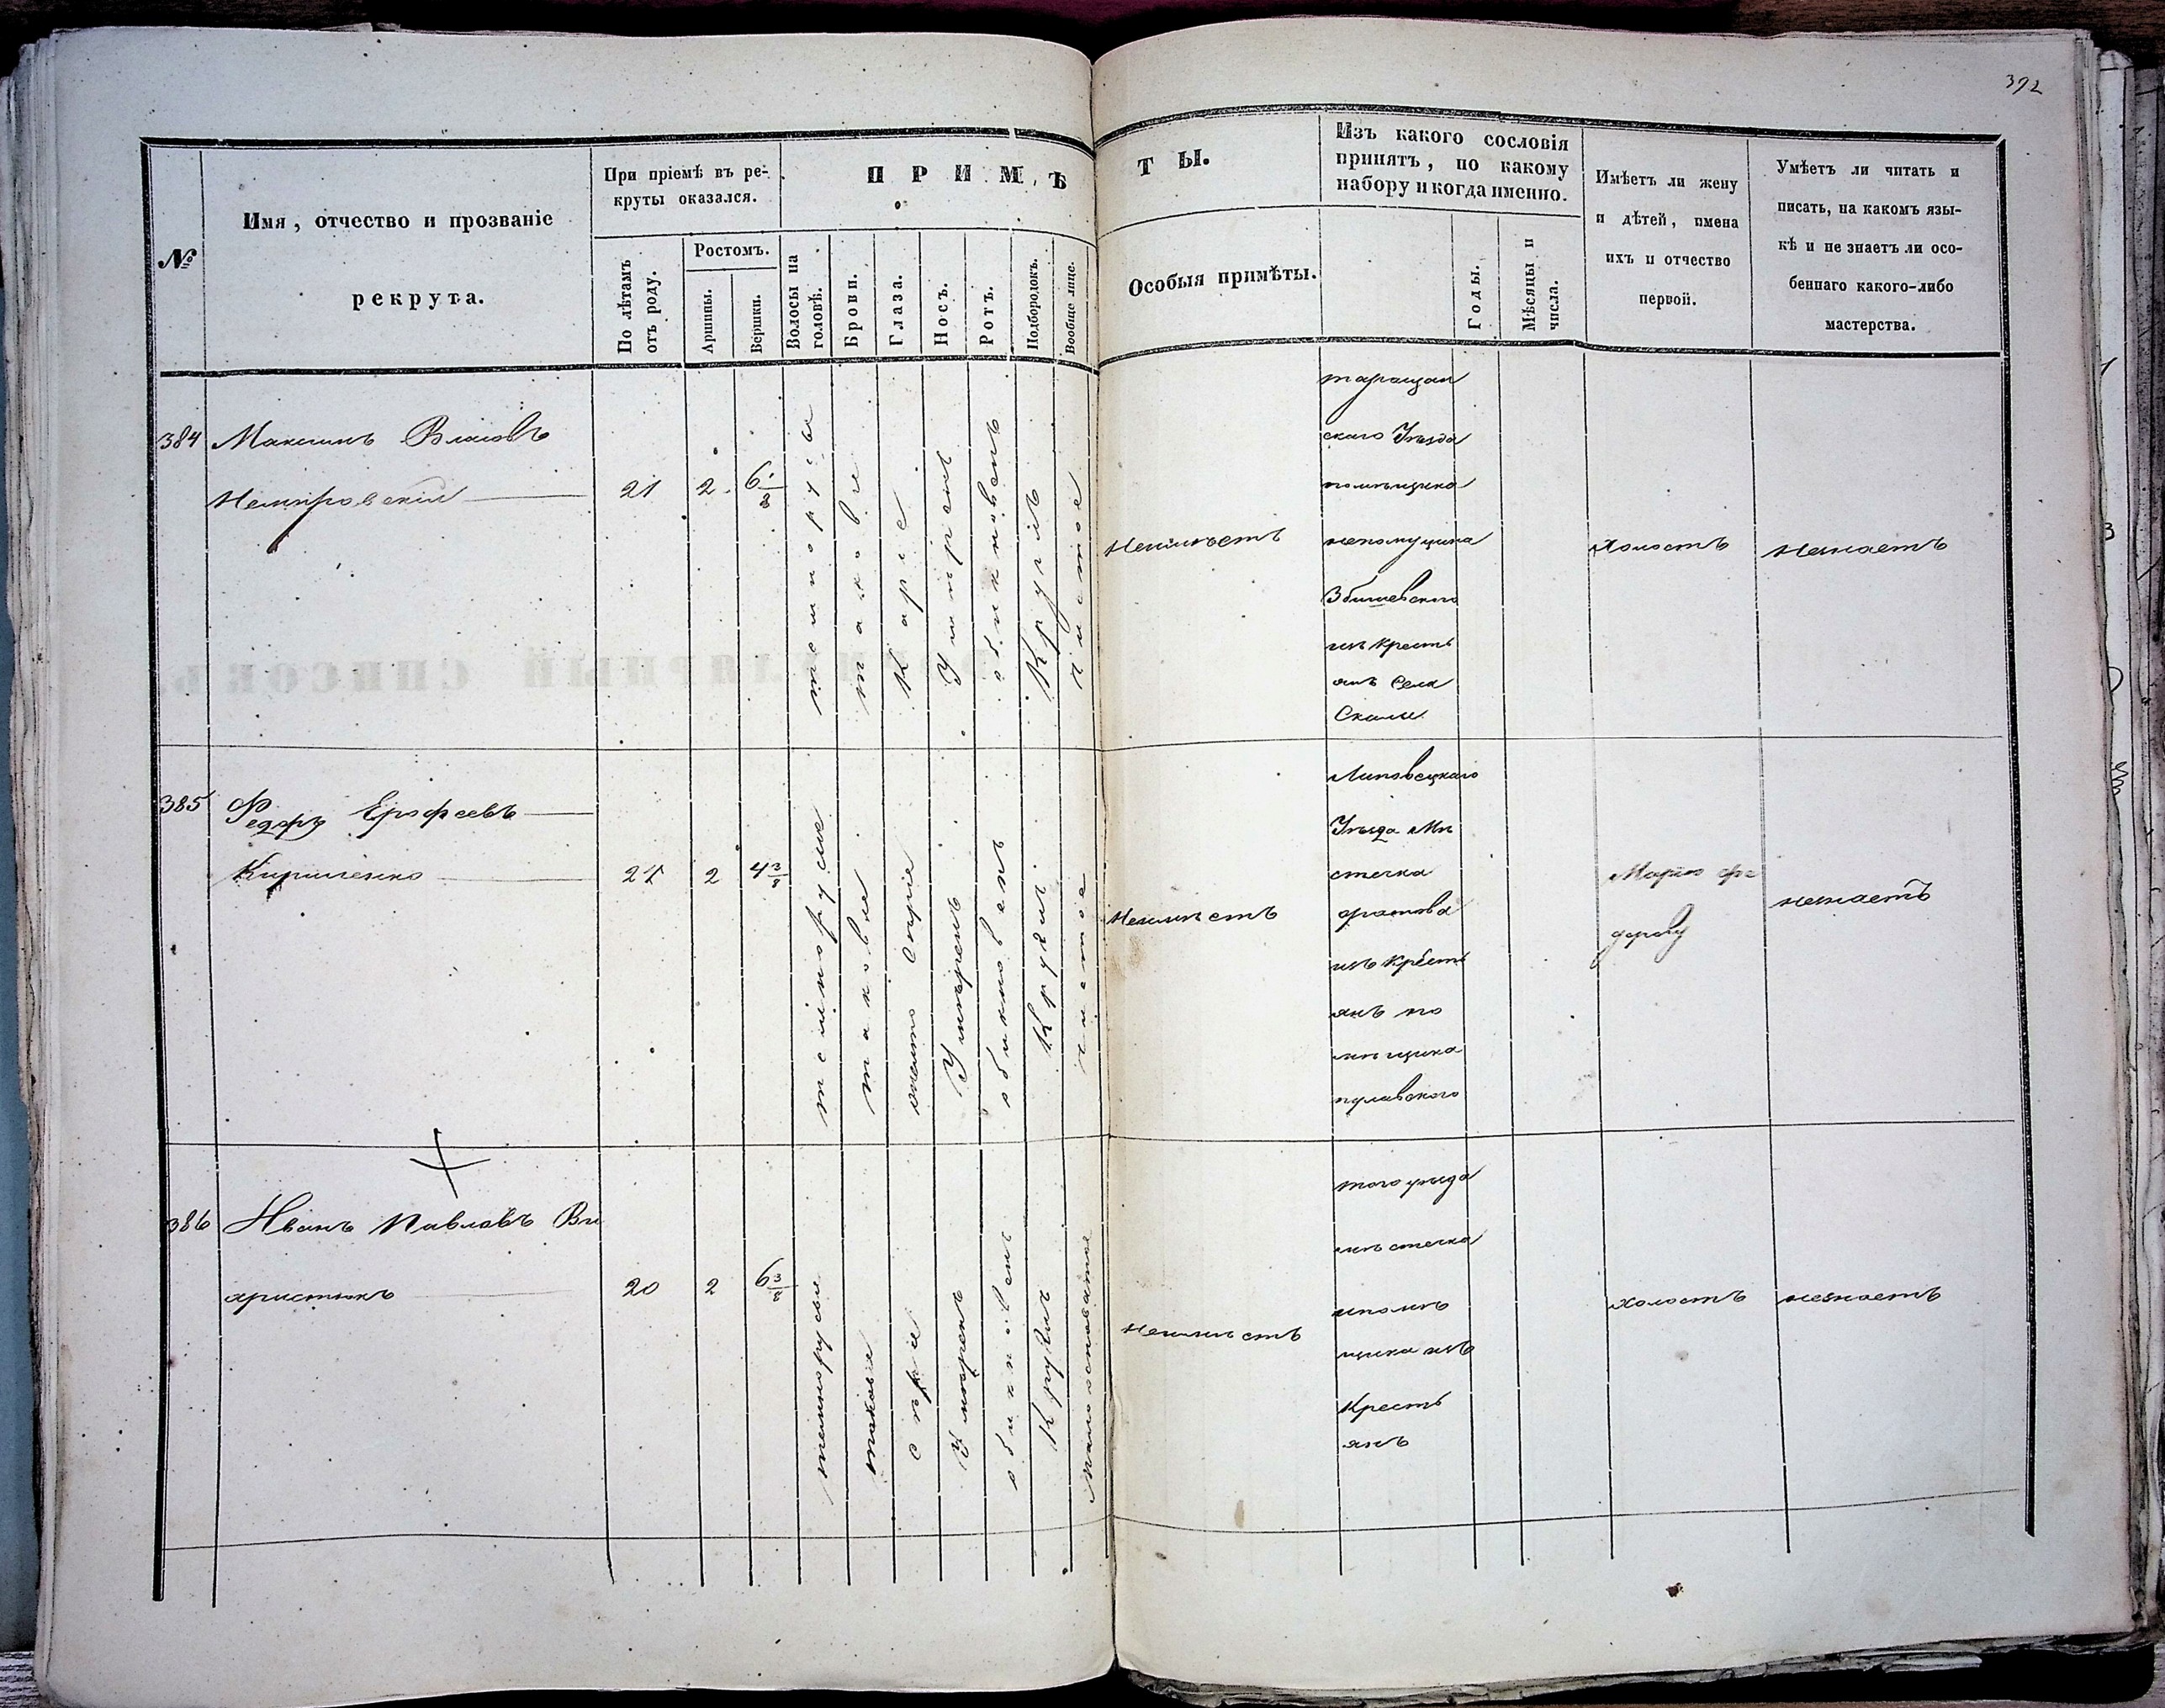 392
№
Имя, отчество и прозваніе
рекрута.
При пріемѣ въ ре-
круты оказался.
По лѣтамъ
отъ роду.
Ростомъ.
Аршины.
Вершки.
ПРИМѢТЫ.
Волосы на
головѣ.
Брови.
Глаза.
Носъ.
Ротъ.
Подбородокъ.
Вообще лице.
Особыя примѣты.
Изъ какого сословія
принятъ, по какому
набору и когда именно.
Годы.
Мѣсяцы и
числа.
Имѣетъ ли жену
и дѣтей, имена
ихъ и отчество
первой.
Умѣетъ ли читать и
писать, на какомъ язы-
кѣ и не знаетъ ли осо-
беннаго какого-либо
мастерства.
384
Максимъ Власовъ
Немировскій
21
2
6 1/8
темнорусы
таковые
Каріе
Умѣренъ
обыкновенъ
Круглъ
чистое
Неимѣетъ
таращан
скаго Уѣзда
помѣщика
непомуцина
Збышевского
изъ Кресть
янъ Села
Скалы
Холостъ
Незнаетъ
385
Федоръ Ерофеевъ
Кириленко
2
4 3/8
темнорусые
таковые
Сѣріе
Умѣренъ
обикновенъ
Круглъ
чистое
Неимѣетъ
Липовецкаго
Уѣзда Мѣ
стечка
изъ Кресть
янъ по
мѣщика
Марію Фе
дорову
незнаетъ
386
Иванъ Павловъ Ви
аристюкъ
20
2
6 3/8
темнорусые
таковіе
сѣріе
Умѣренъ
обикновенъ
Круглъ
Малоосповатое
Неимѣетъ
того уѣзда
мѣстечка
ипомѣ
щика изъ
Кресть
янъ
холостъ
незнаетъ